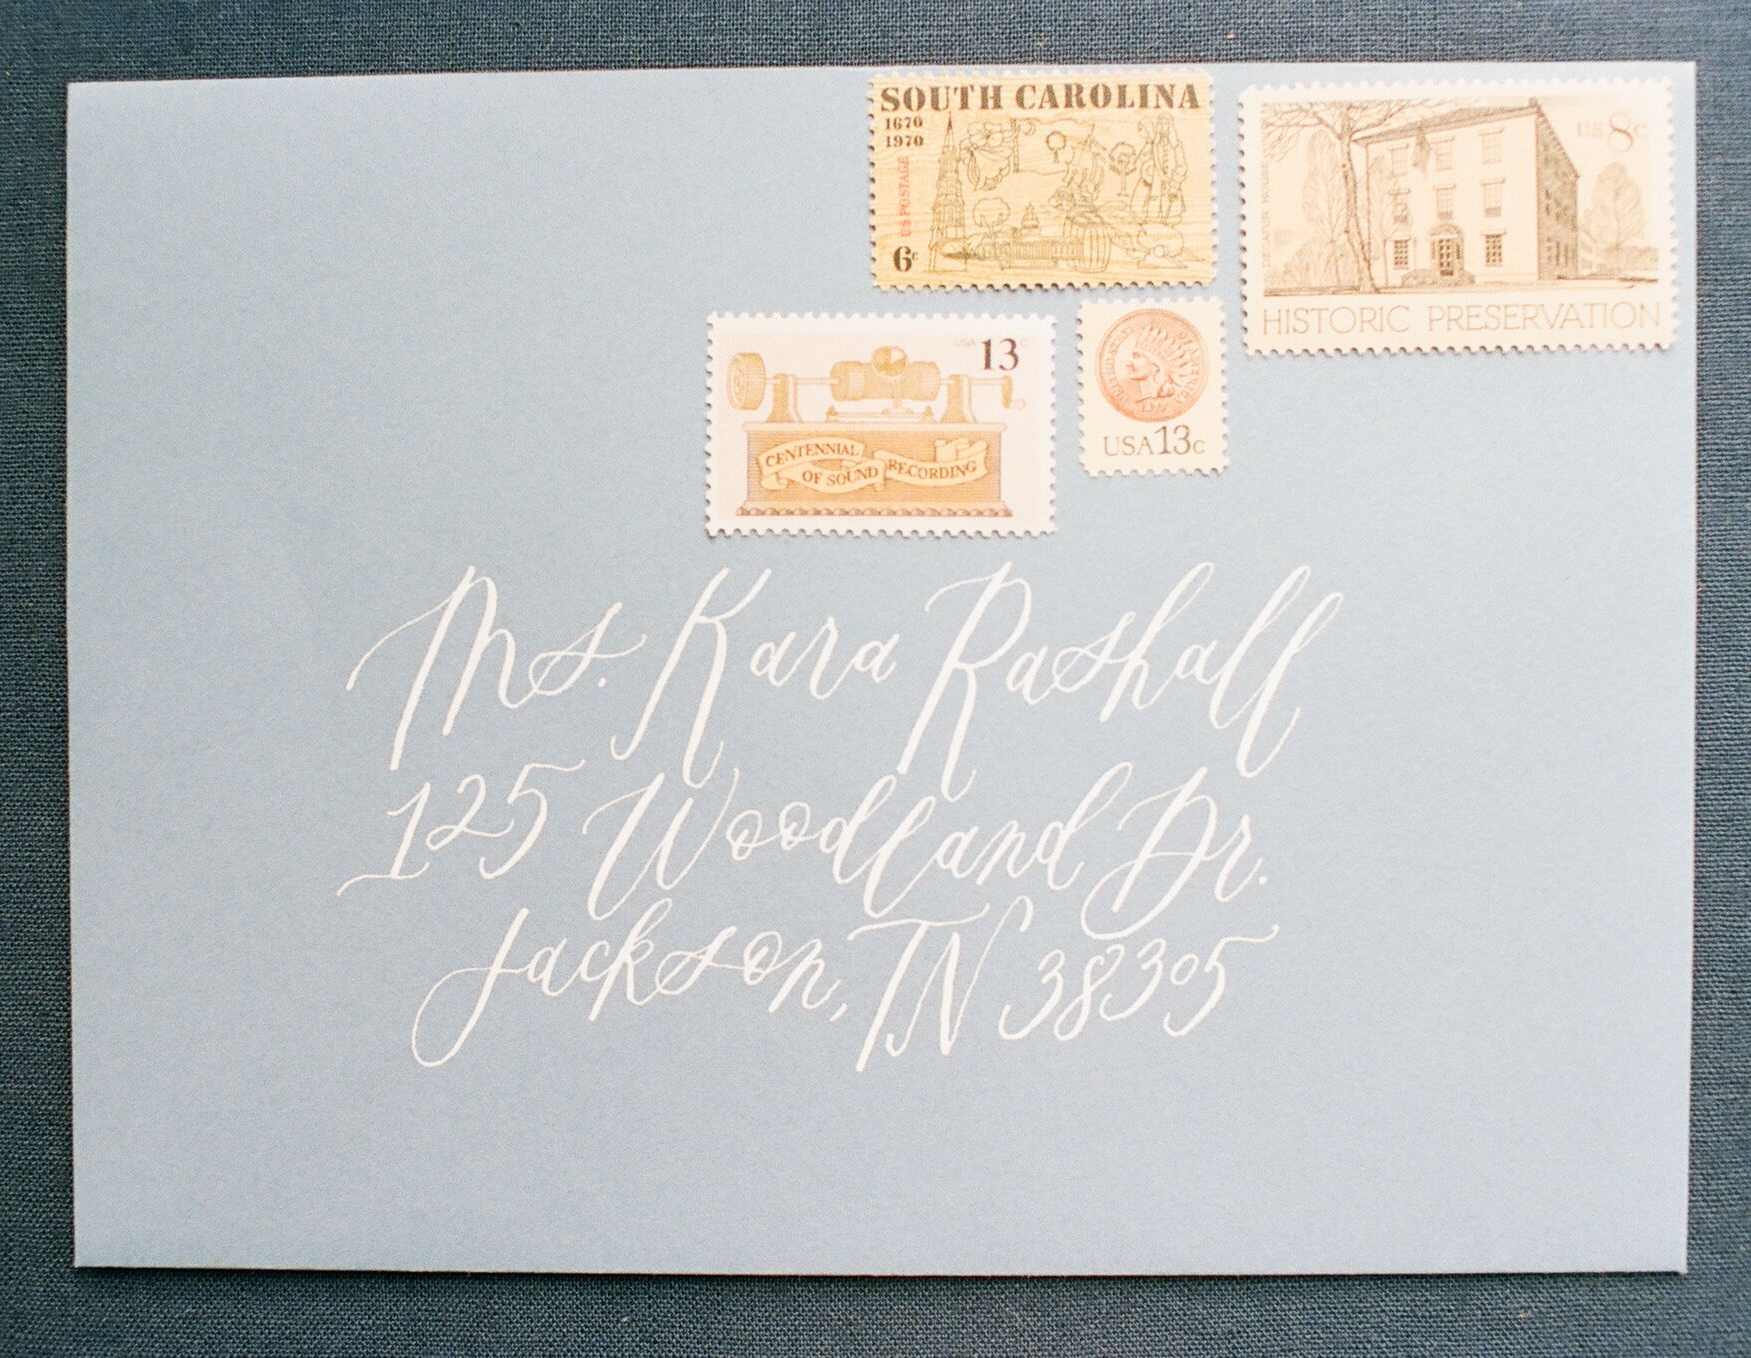 SOUTH CAROLINA
1670
1970
US POSTAGE
6c
DECATUR HOUSE
US 8c
HISTORIC PRESERVATION
USA 13c
CENTENNIAL
OF SOUND RECORDING
USA 13c
Ms. Kara Rashall
125 Woodland Dr.
Jackson, TN 38305